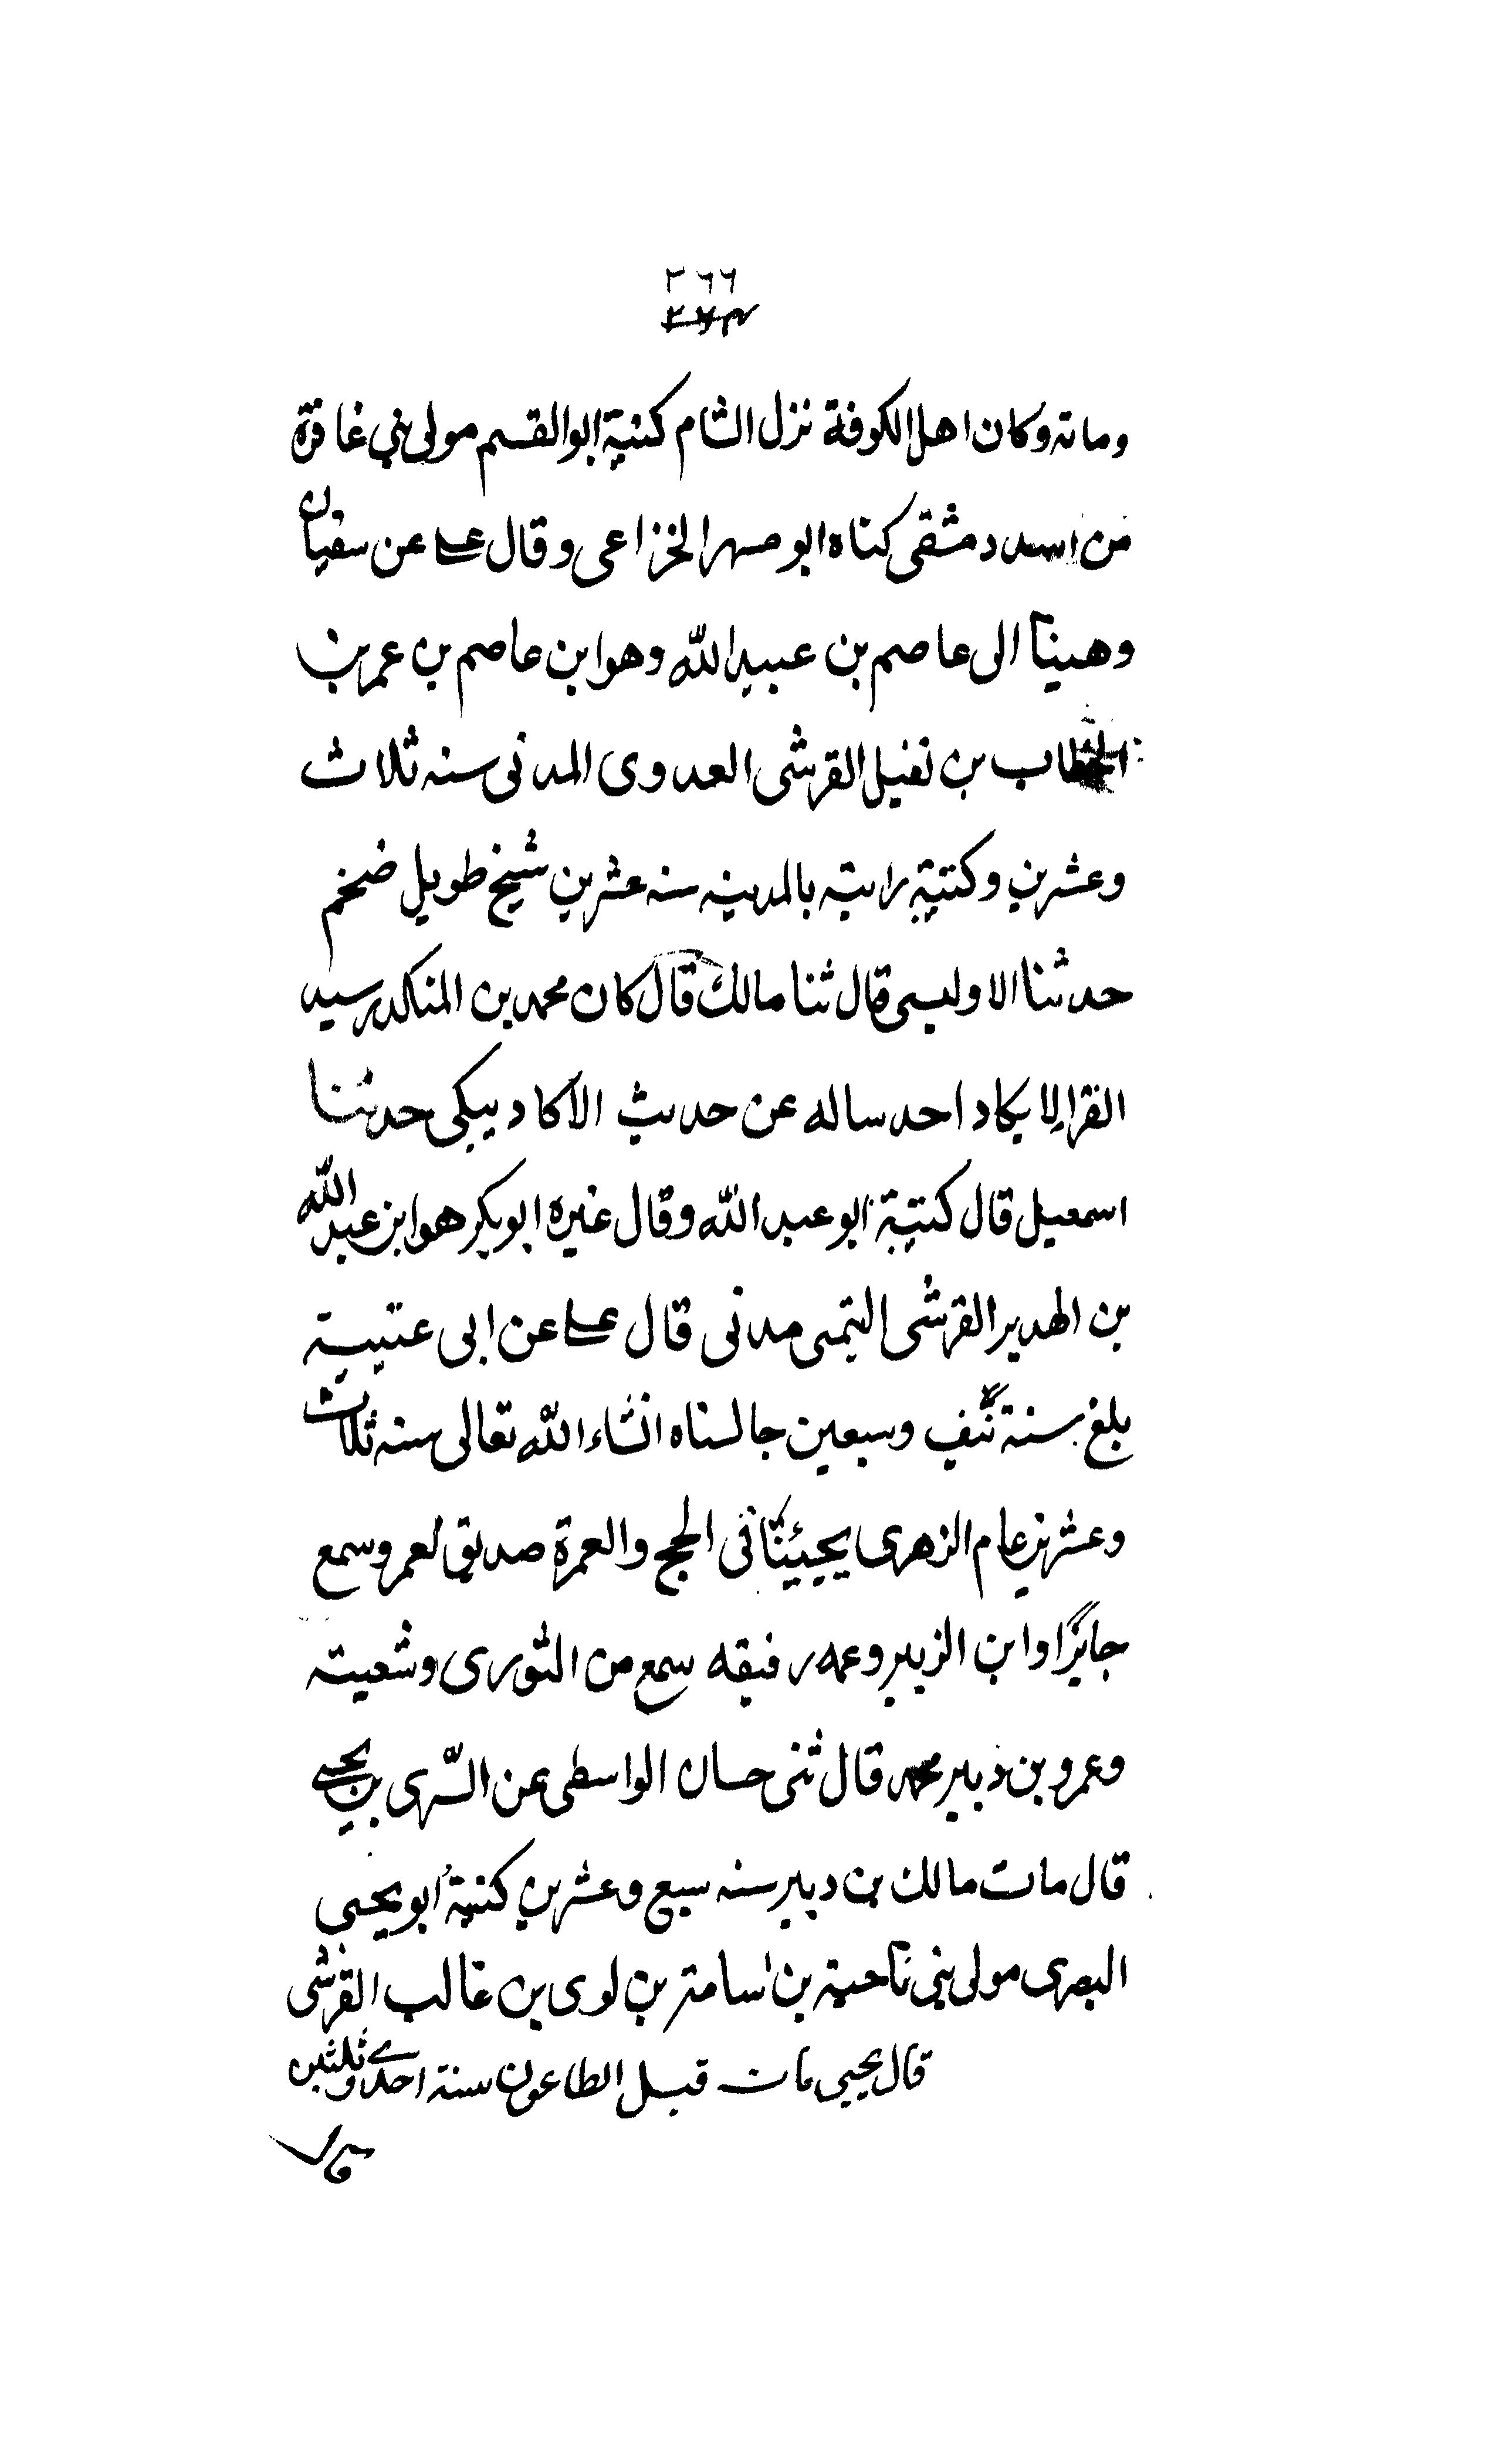 ٢٦٦
ومائة وكان اهل الكوفة نزل الشام كنيته ابو القسم مولى بني غاضرة
من اسد دمشقى كناه ابو مسهر الخزاعى وقال على عن سفيان
وهينا الى عاصم بن عبيد الله وهو ابن عاصم بن عمر بن
الخطاب بن نفيل القرشى العدوى المدنى سنه ثلاث
وعشرين وكتبته رايته بالمدينه سنه عشرين شيخ طويل ضخم
حدثنا الاوليسى قال ثنا مالك قال كان محمد بن المنكدر سيد
القرا لا يكاد احد ساله عن حديث الا كاد يبكى حدثنا
اسمعيل قال كنيته ابو عبد الله وقال غيره ابو بكر هو ابن عبد الله
بن الهدير القرشى التيمى مدنى قال على عن ابى عتيبة
بلغ سنة نيف وسبعين جالسناه انشاء الله تعالى سنه ثلاث
وعشرين عام الزهرى يجيئنا فى الحج والعمرة صديق لعمر وسمع
جابرا وابن الزبير وعمه رفيقه سمع من الثورى وشعبته
وعمرو بن دبير محمد قال ثنى حسان الواسطى عن السرى بن يحيى
قال مات مالك بن دبير سنه سبع وعشرين كنيته ابو يحيى
البصرى مولى بني ناحية بن اسامة بن لوى بن غالب القرشى
قال يحيى مات قبل الطاعون سنة احدى وثلثين